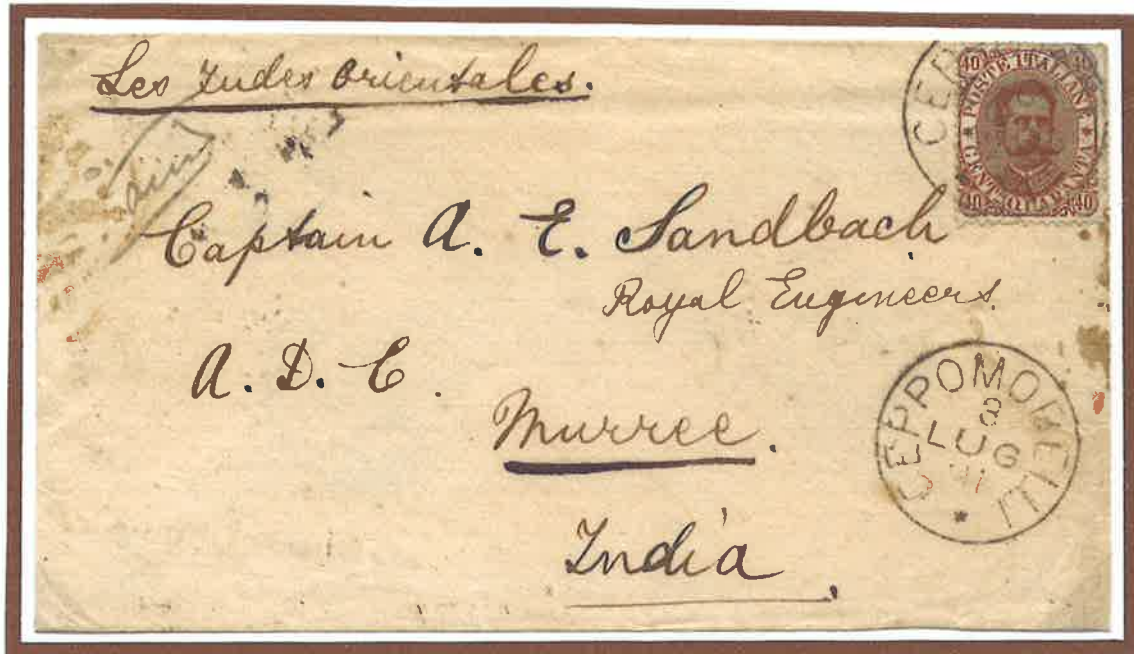 Les Indes Orientales.
CEP
40 40
POSTE ITALIANE
CENT. QUARANTA
40 40
Captain A. E. Sandbach
Royal Engineers.
A. D. C.
Murree.
India.
CEPPOMORELLI
8
LUG
91